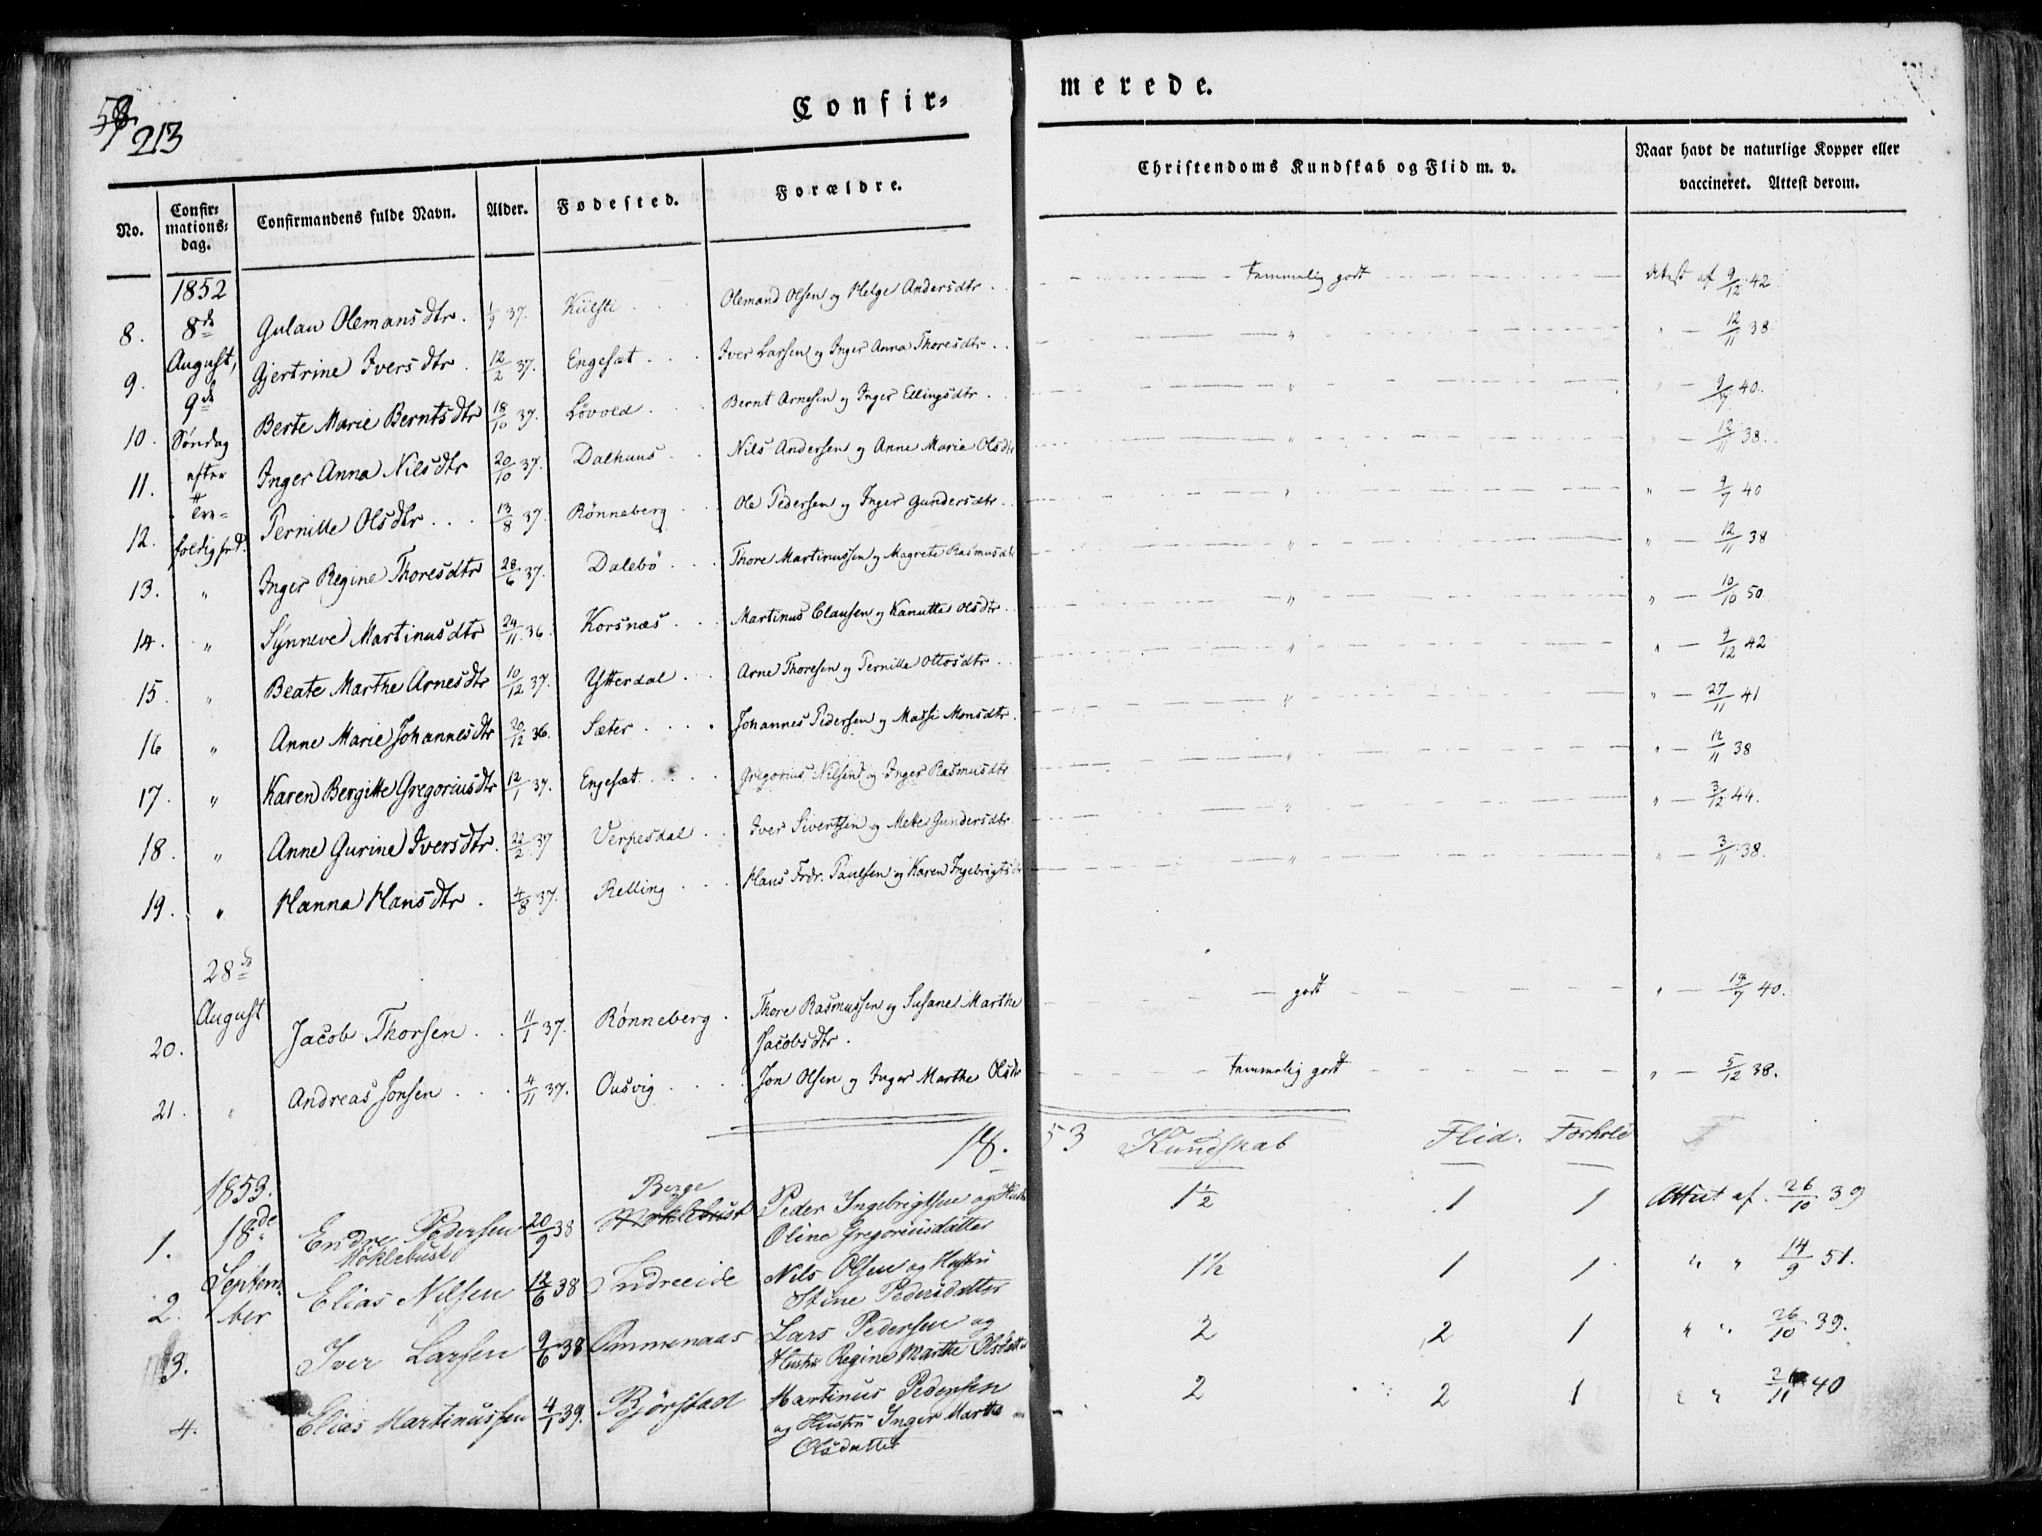 58
213
Confir-
merede.
No. Confir-mations-dag. Confirmandens fulde Navn. Alder. Fødested. Forældre. Christendoms Kundskab og Flid m. v. Naar havt de naturlige Kopper eller vaccineret. Attest derom.
1852
8. 8de Gulau Olemansdtr. 37. Olemand Olsen og Helge Andersdtr. temmelig godt Attest af 9/12 42
9. August, Gjertrine Iversdtr. 12/2 37. Engesæt. Iver Larsen og Inger Anna Thoresdtr. " " — 12/11 38
9de
10. Søndag Berte Marie Berntsdtr 18/10 37. Løvold. Bernt Arnesen og Inger Ellingsdtr. " " — 9/7 40.
11. efter Inger Anna Nilsdtr 20/10 37. Dalhuus. Nils Andersen og Anne Marie Olsdtr " " — 12/11 38.
12. Tre- Pernille Olsdtr. 13/8 37. Rønneberg. Ole Pedersen og Inger Gundersdtr. " " — 9/7 40
foldighed.
13. " Inger Regine Thoresdtr 28/6 37. Dalebø. Thore Martinussen og Magrete Rasmusdtr " " — 12/11 38
14. " Synneve Martinusdtr 24/11 36. Korsnæs. Martinus Clausen og Kanutte Olsdtr. " " — 10/10 50
15. " Beate Marthe Arnesdtr 10/12 37. Ytterdal. Arne Thoresen og Pernille Ottosdtr. " " — 9/12 42
16 " Anne Marie Johannesdtr 20/12 36. Sæter. Johannes Pedersen og Massi Monsdtr. " " — 27/11 41
17. " Karen Bergitte Gregoriusdtr 12/1 37. Engesæt. Gregorius Nilsen og Inger Rasmusdtr " " — 12/11 38
18. " Anne Gurine Iversdtr. 22/2 37 Verpesdal. Iver Sivertsen og Mette Gundersdtr. " " — 3/12 44.
19. " Hanna Hansdtr. 4/8 37. Relling. Hans Frdr. Paulsen og Karen Ingebrigtsdtr " " — 3/11 38.
28de
August
20. Jacob Thorsen 11/1 37. Rønneberg. Thore Rasmussen og Susane Marthe godt " — 40.
Jacobsdtr.
21. " Andreas Jonsen 4/11 37. Ousvig. Jon Olsen og Inger Marthe Olsdtr temmelig godt " — 5/12 38.
18. 53 Kundskab Flid. Forhold
1853.
Berge
1. 18de Endre Pedersen 20/9 38 Møklebust Peder Ingebrigtsen og Hustru 1½ 1 1 Attest af. 26/10 39
Møklebust Oline Gregoriusdatter
2. Septem- Elias Nilsen 12/6 38 Indreeide Nils Olsen og Hustru 1½ 1 1 " " 14/9 51.
ber Stine Pedersdatter
3. Iver Larsen 9/6 38 Ommenaas Lars Pedersen og 2 2 1 " " 26/10 39.
Hustru Regine Marthe Olsdatter
4. Elias Martinussen 4/1 39. Bjørstad Martinus Pedersen 2 2 1 " " 40
og Hustru Inger Marthe
Olsdatter